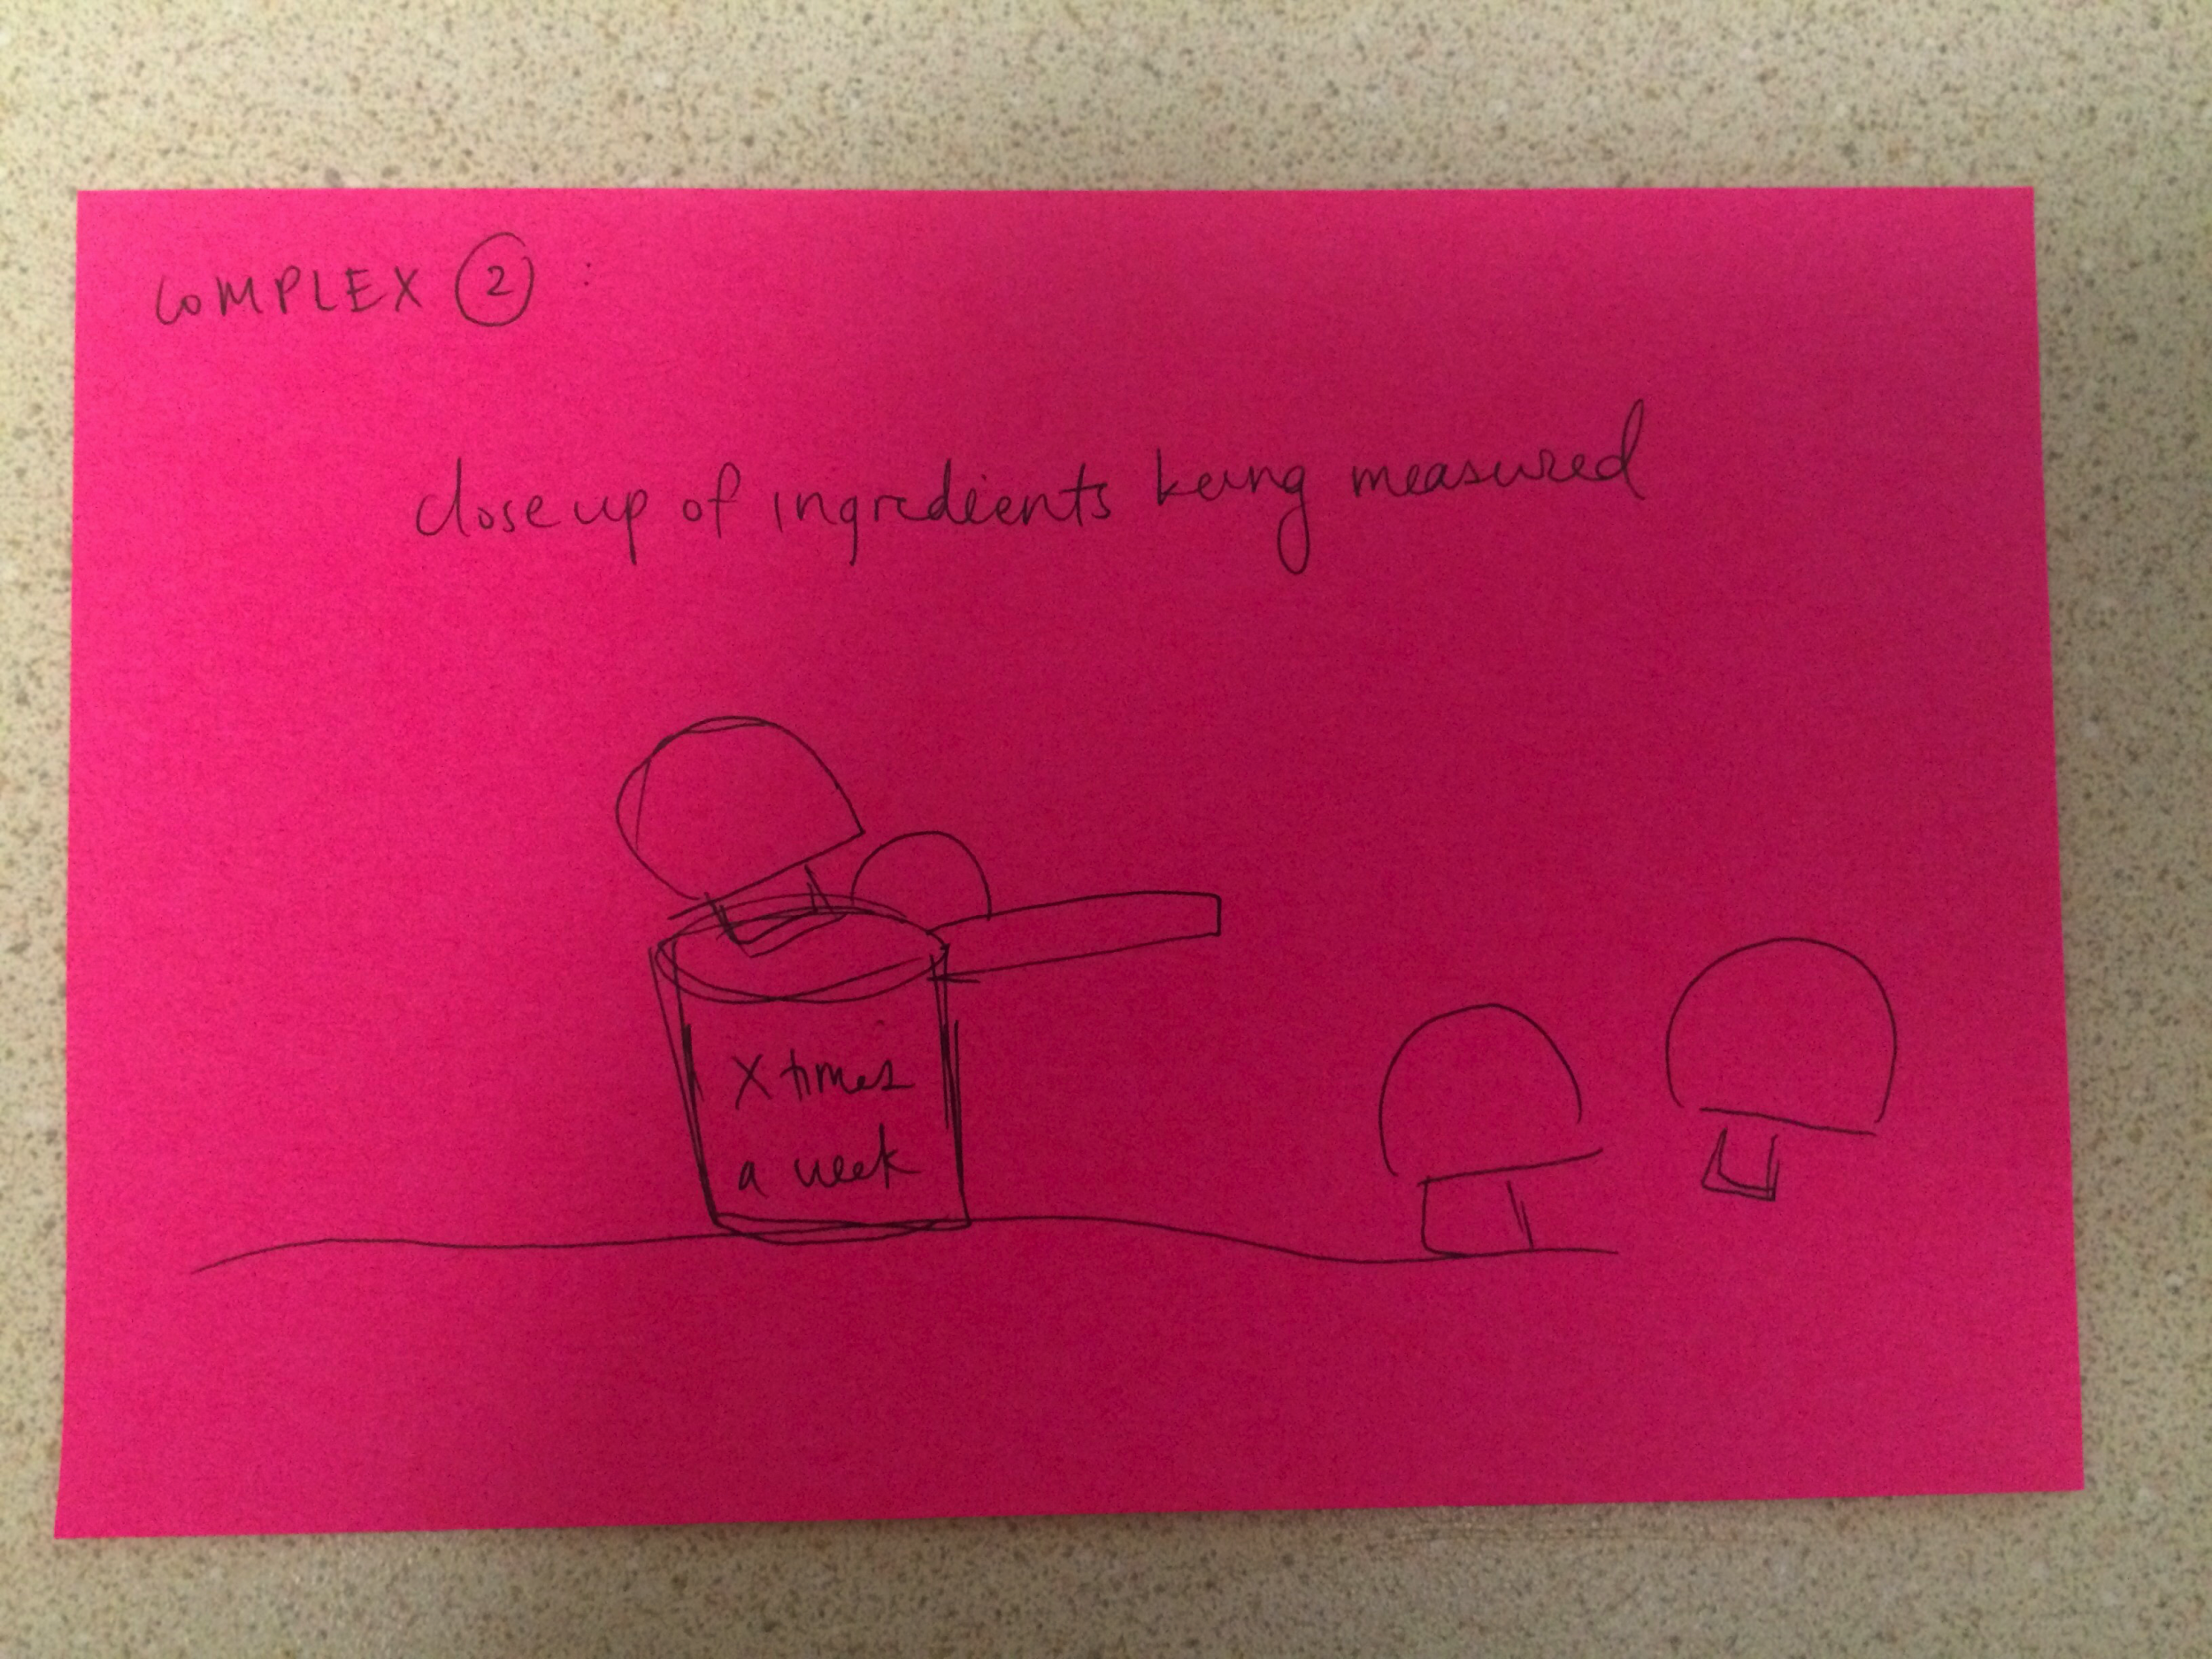 COMPLEX 2 :
close up of ingredients being measured
X times
a week